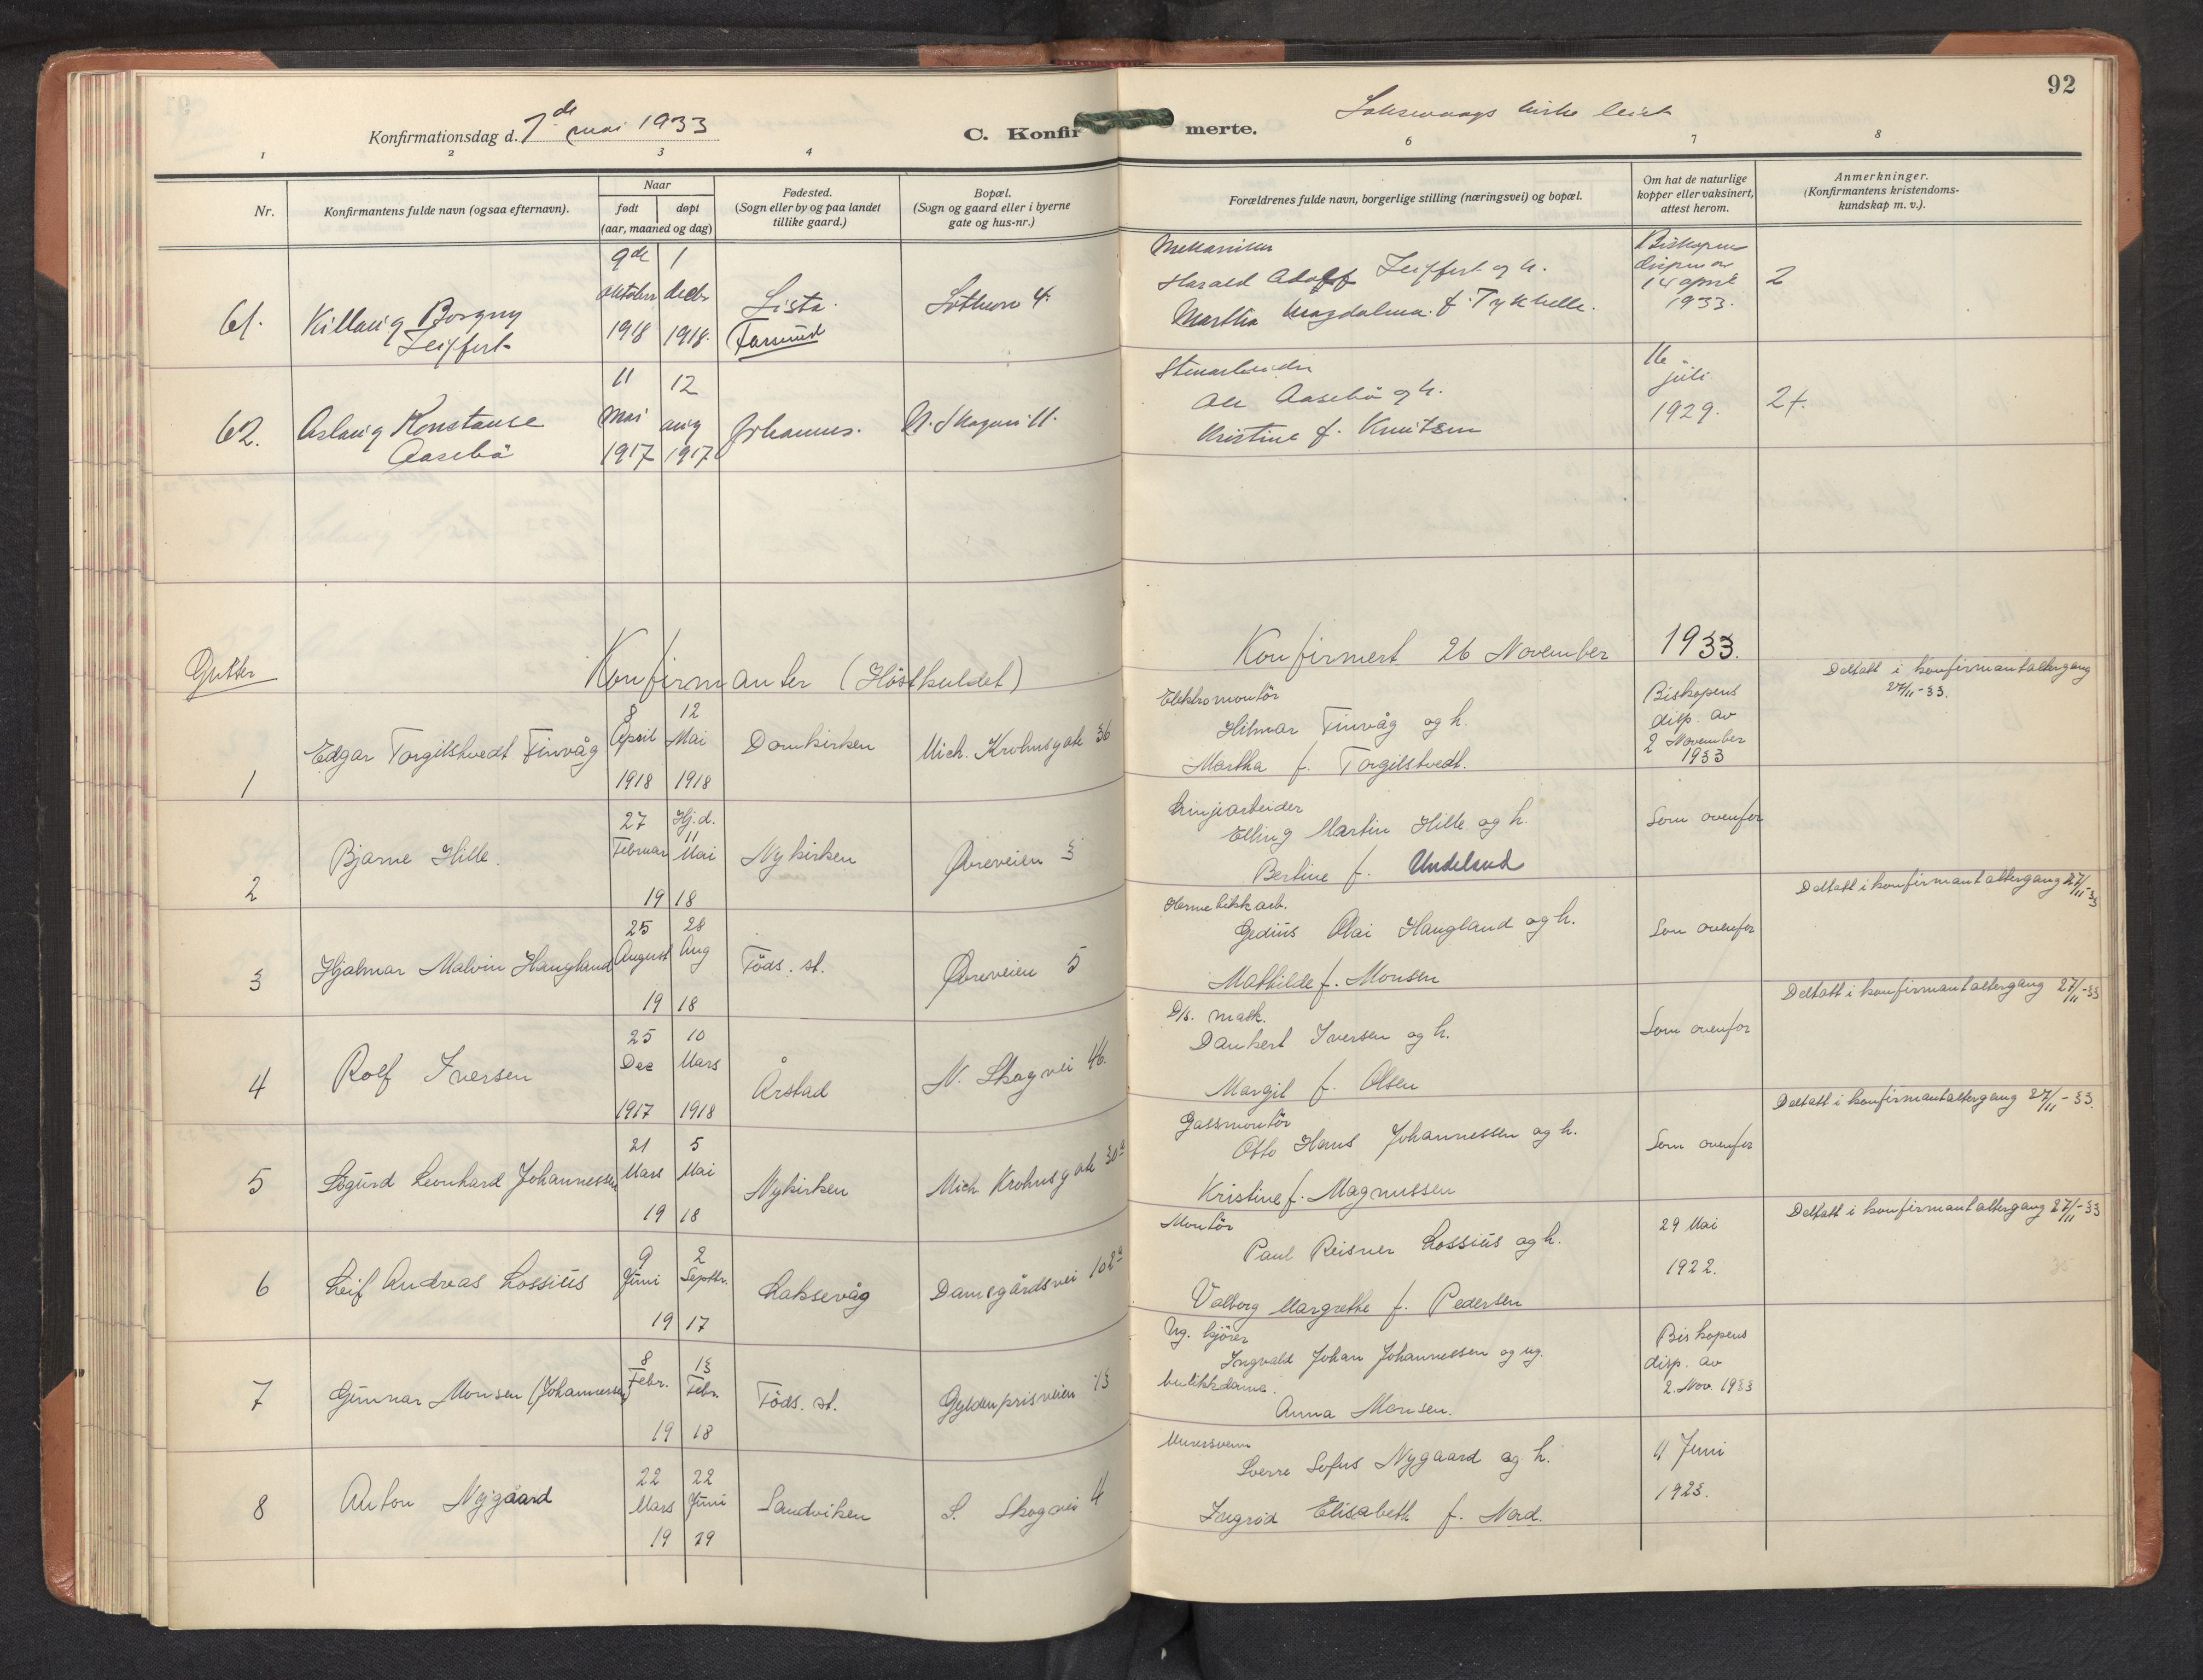 92
Konfirmationsdag d. 7de mai 1933
C. Konfirmerte.
Laksevaags kirke
1 2 3 4 6 7 8
Nr.
Konfirmantens fulde navn (ogsaa efternavn).
Naar
født døpt
(aar, maaned og dag)
Fødested.
(Sogn eller by og paa landet
tillike gaard.)
Bopæl.
(Sogn og gaard eller i byerne
gate og hus-nr.)
Forældrenes fulde navn, borgerlige stilling (næringsvei) og bopæl.
Om hat de naturlige
kopper eller vaksinert,
attest herom.
Anmerkninger.
(Konfirmantens kristendoms-
kundskap m. v.).
61. Borgny
9de oktober 1918
1 decbr 1918.
Lista.
Farsund
4.
Mekaniker
Harald Adolf og h.
Martha Magdalena f.
Biskopens
disp. av
14 april
1933.
2
62. Aslaug Konstanse
Aasebö
11 Mai 1917
12 aug 1917
Johannes.
N. Skogvei 11.
Stenarbeider
Ole Aasebö og h.
Kristine f. Knutsen
16
juli
1929.
2+.
Gutter
Konfirmanter (Höstkuldet)
Konfirmert 26 November 1933.
1 Edgar Torgilstvedt Finvåg
8 April 1918
12 Mai 1918
Domkirken
Mich. Krohnsgate 36
Elektromontör
Hilmar Finvåg og h.
Martha f. Torgilstvedt.
Biskopens
disp. av
2 November
1933
Deltatt i konfirmantaltergang
27/11-33.
2 Bjarne Hille.
27 Februar
Hj.d.
11 Mai
19 18
Nykirken
Øvreveien 3
Linjearbeider
Elling Martin Hille og h.
Bertine f. Undelund
Som ovenfor
3 Hjalmar Malvin Haugland
25 August
28 Aug
19 18
Föds. st.
Øvreveien 5
Hermetikkarb.
Gediüs Olai Haugland og h.
Mathilde f. Monsen
Som ovenfor
Deltatt i konfirmantaltergang 27/11-33
4 Rolf Iversen
25 Dec 1917
10 Mars 1918
Årstad
N. Skogvei 46.
D/s. mask.
Dankert Iversen og h.
Margit f. Olsen
Som ovenfor
Deltatt i konfirmantaltergang 27/11-33
5 Sigurd Leonhard Johannessen
21 Mars
5 Mai
19 18
Nykirken
Mich Krohnsgate 30a
Gassmontör
Otto Hans Johannessen og h.
Kristine f. Magnussen
Som ovenfor
Deltatt i konfirmantaltergang 27/11-33.
6 Leif Andreas Lossiüs
9 Juni
2 Septbr.
19 17
Laksevåg
Damsgårdsvei 102a
Montör
Paul Reisner Lossiüs og h.
Valborg Margrethe f. Pedersen
29 Mai
1922.
Deltatt i konfirmantaltergang 27/11-33
7 Gunnar Monsen (Johannessen)
8 Febr.
13 Febr.
19 18
Föds. st.
Gyldenprisveien 13
Ug. kjörer
Ingvald Johan Johannessen og ug.
butikkdame.
Anna Monsen.
Biskopens
disp. av
2. Nov. 1933
8 Anton Nygåard
22 Mars
22 Juni
19 29
Sandviken
S. Skogvei 4
Murersvenn
Sverre Sofus Nygaard og h.
Ingrid Elisabeth f. Nord.
4 Juni
1923.